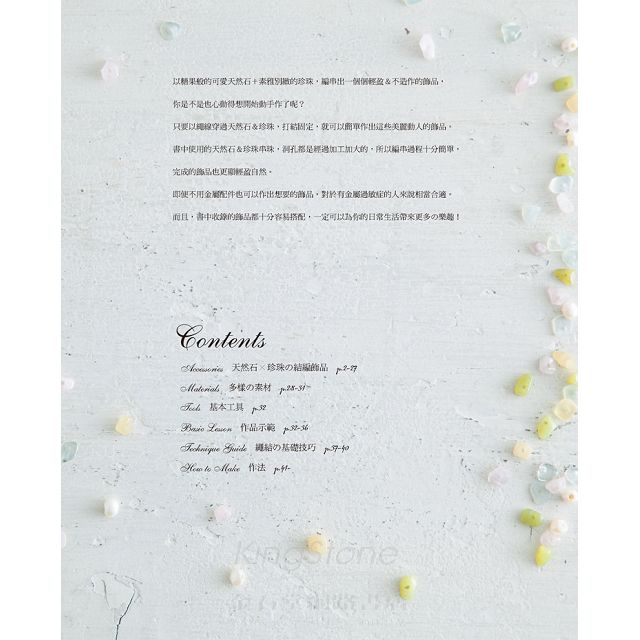 以糖果般的可愛天然石＋素雅別緻的珍珠，編串出一個個輕盈＆不造作的飾品，
你是不是也心動得想開始動手作了呢？
只要以繩線穿過天然石＆珍珠，打結固定，就可以簡單作出這些美麗動人的飾品。
書中使用的天然石＆珍珠串珠，洞孔都是經過加工加大的，所以編串過程十分簡單，
完成的飾品也更顯輕盈自然。
即便不用金屬配件也可以作出想要的飾品，對於有金屬過敏症的人來說相當合適。
而且，書中收錄的飾品都十分容易搭配，一定可以為你的日常生活帶來更多の樂趣！
Contents
Accessories 天然石×珍珠の結編飾品 p.2-27
Materials 多樣の素材 p.28-31
Tools 基本工具 p.32
Basic Lesson 作品示範 p.32-36
Technique Guide 繩結の基礎技巧 p.37-40
How to Make 作法 p.41-
KingStone